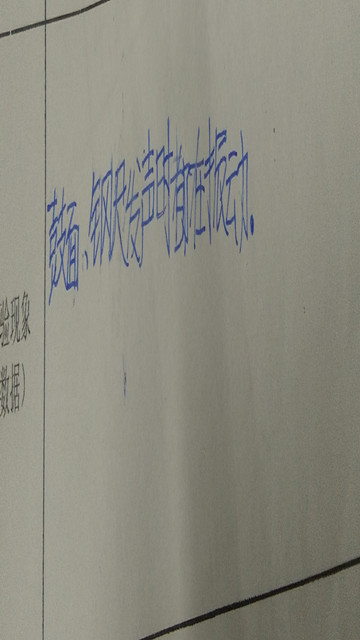 鼓面、钢尺发声时都在振动.
验现象
数据）